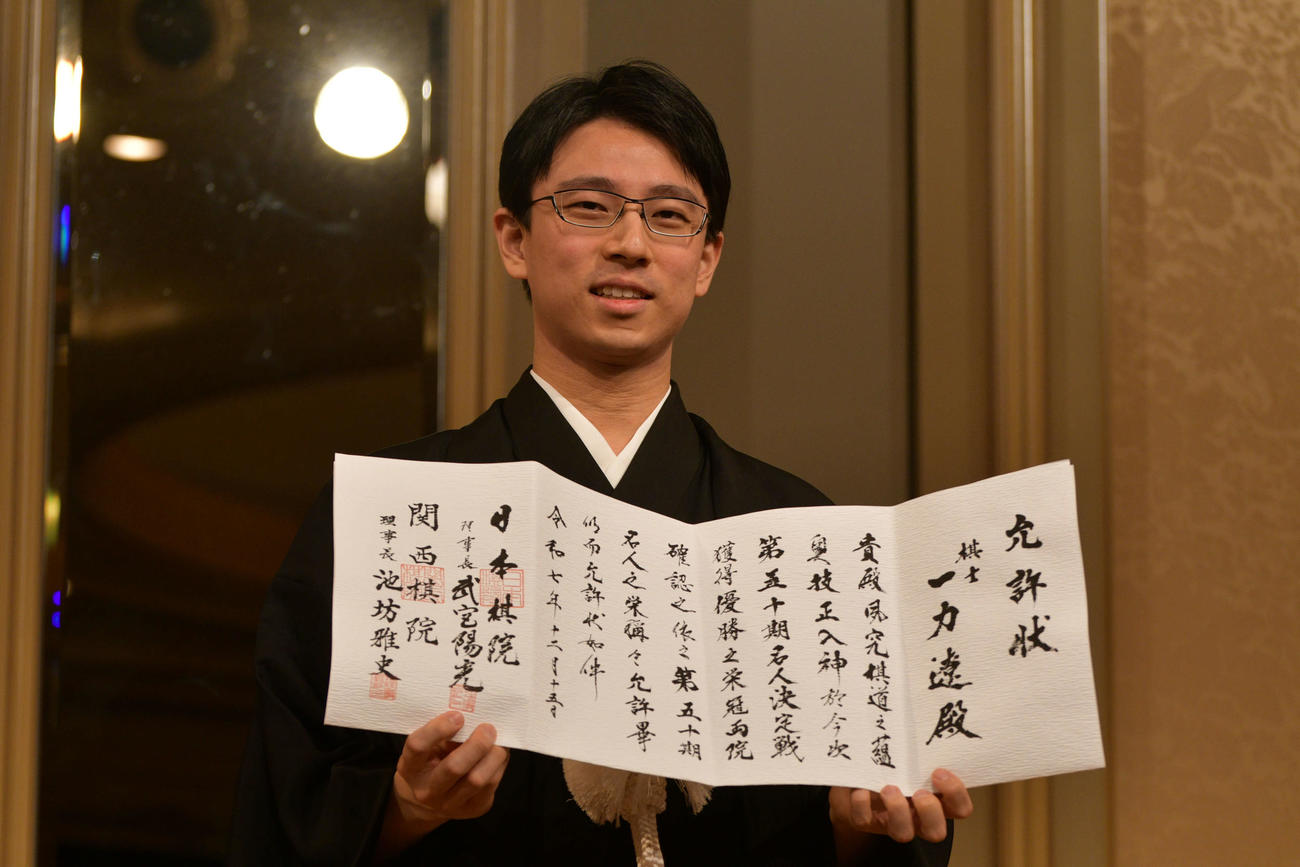 允許状
棋士 一力遼殿
貴殿夙究棋道之蘊
奥技正入神於今次
第五十期名人決定戦
獲得優勝之栄冠両院
確認之依之第五十期
名人之栄稱々允許畢
仍而允許状如件
令和七年十二月十五日
日本棋院
理事長 武宮陽光
関西棋院
理事長 池坊雅史